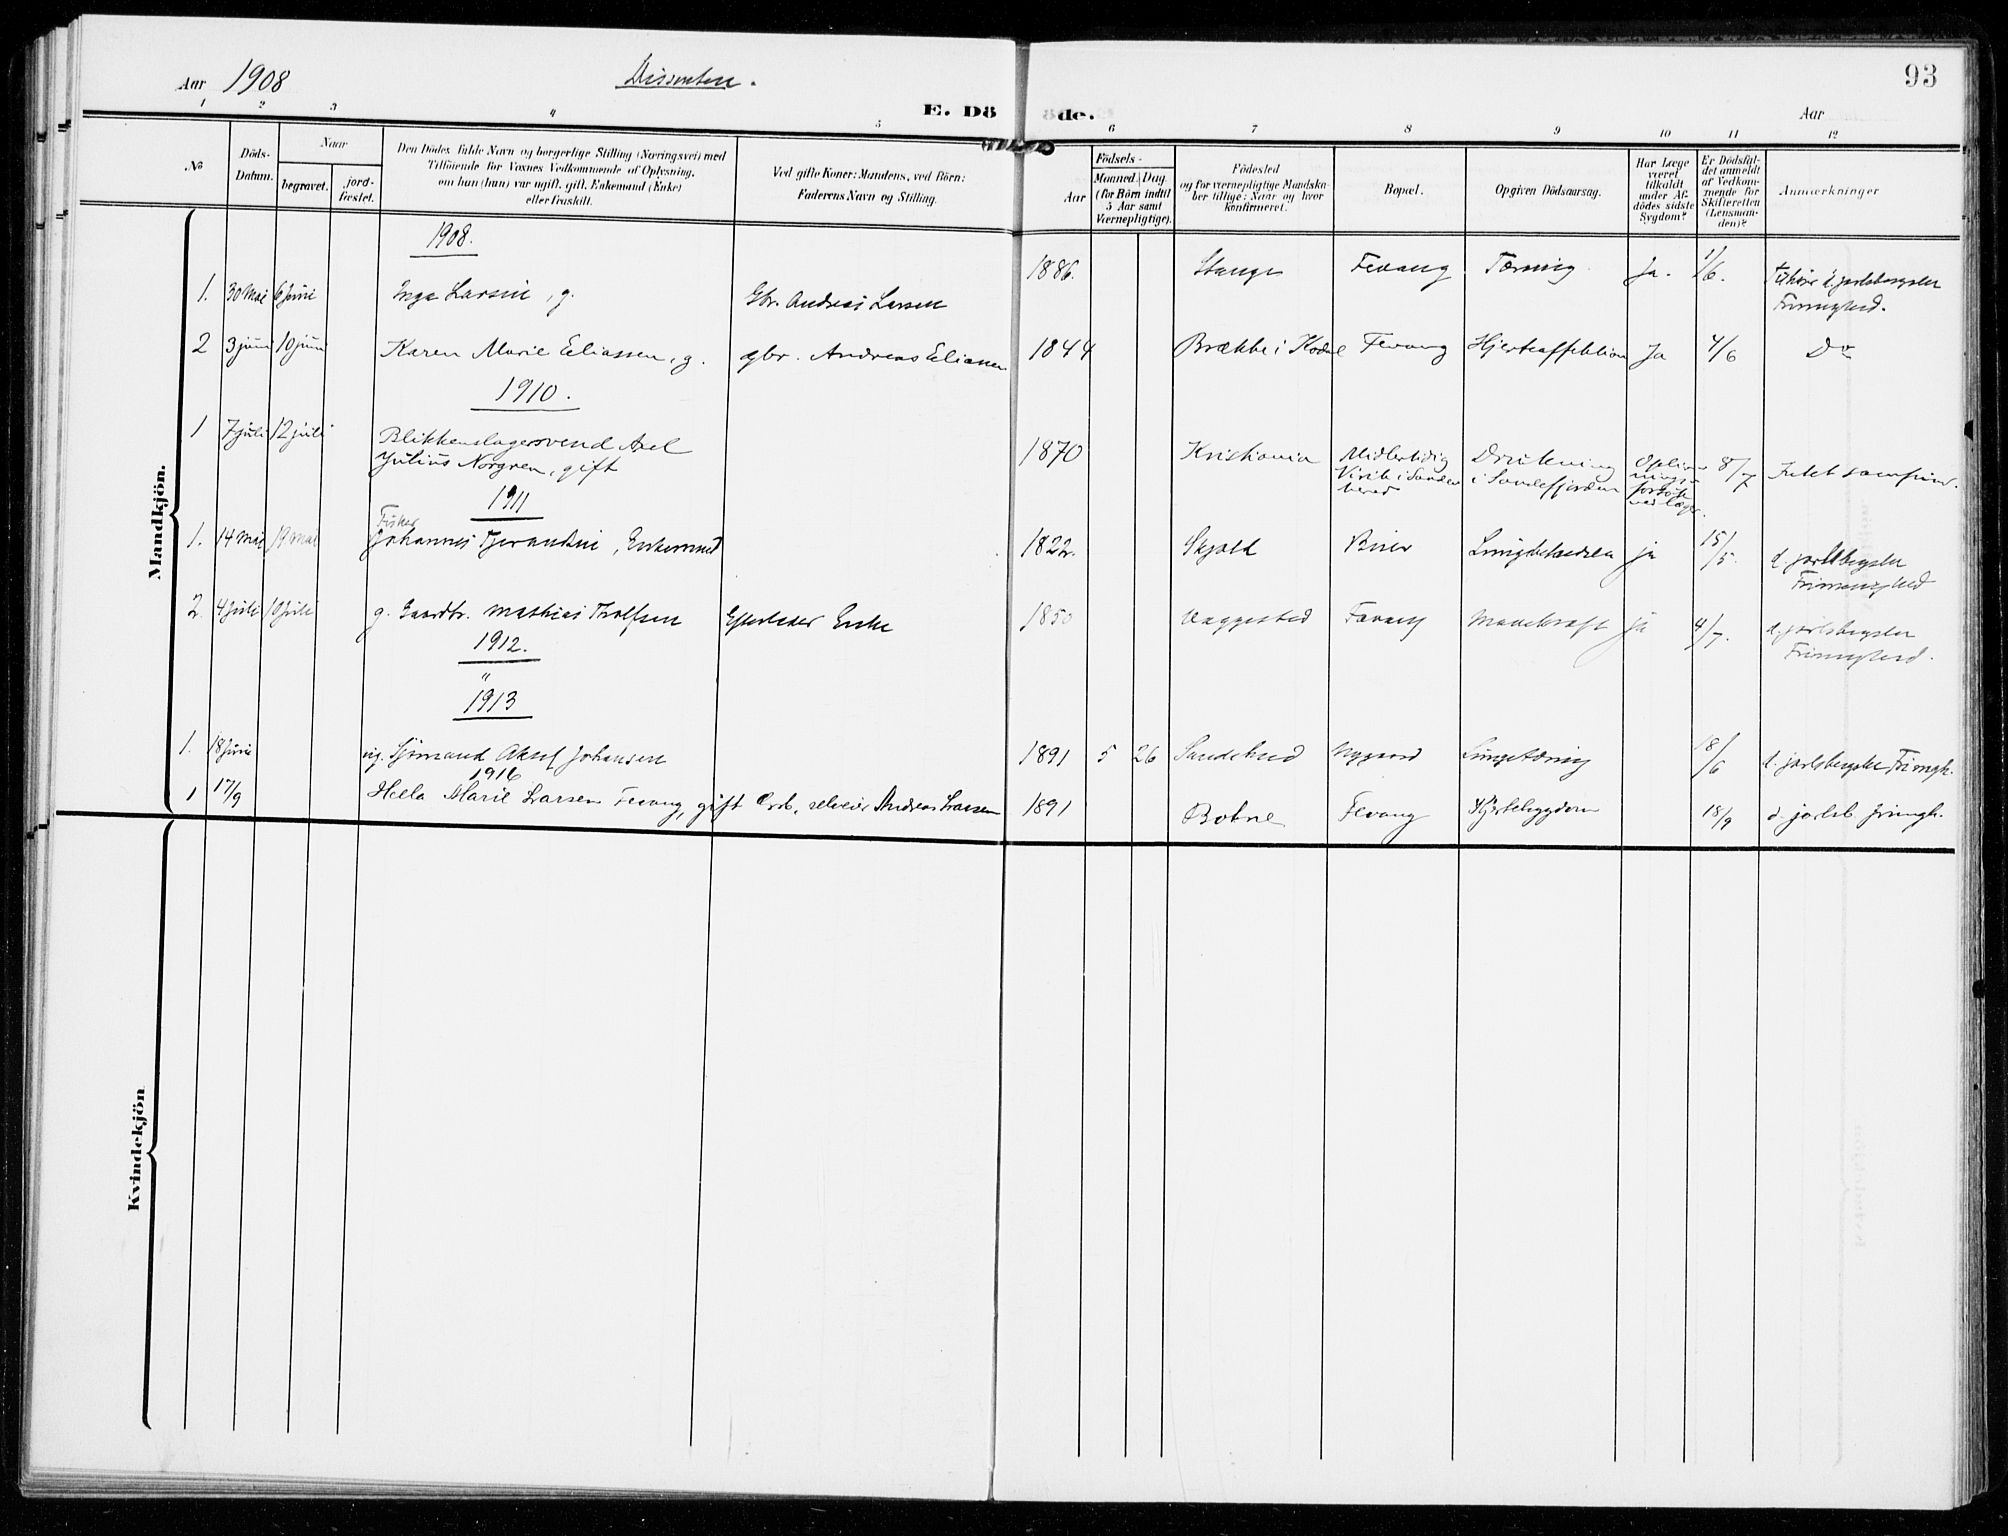 Aar 1908
Dissentere.
E. Döde.
Aar
93
1 2 3 4 5 6 7 8 9 10 11 12
No
Döds-
Datum.
Naar
begravet.
jord-
fæstet.
Den Dödes fulde Navn og borgerlige Stilling (Næringsvei) med
Tilföiende for Voxnes Vedkommende af Oplysning,
om han (hun) var ugift, gift, Enkemand (Enke)
eller fraskilt.
Ved gifte Koner: Mandens, ved Börn:
Faderens Navn og Stilling.
Födsels-
Aar
Maaned. Dag.
(for Börn indtil
5 Aar samt
Værnepligtige).
Födested
og for værnepligtige Mandska-
ber tillige: Naar og hvor
konfirmeret.
Bopæl.
Opgiven Dödsaarsag.
Har Læge
været
tilkaldt
under Af-
dödes sidste
Sygdom?
Er Dödsfal-
det anmeldt
af Vedkom-
mende for
Skifteretten
(Lensman-
den)?
Anmærkninger
Mandkjön.
1908.
1. 30 Mai 6 Juni Inga Larsen, g. Gbr. Andreas Larsen 1886. Stange Fevang Tæring Ja. 1/6. Tilhörer d. jarlsbergske
Frimenighed.
2 3 juni 10 juni Karen Marie Eliassen, g. gbr. Andreas Eliassen 1844 Brække i Kodal Fevang Hjerteaffektion Ja 4/6 Do
1910.
1 7 juli 12 juli Blikkenslagersvend Axel
Julius Norgren, gift 1870 Kristiania Midlertidig
Visit i Sande
herred Drukning
i Sandefjorden
ved læge. 8/7 Intet samfund.
1911
1. 14 Mai 19 Mai Fisker
Johannes Tjerandsen, Enkemand 1822. Skjold ja 15/5. d. jarlsbergske
Frimenighed
2. 4 Juli 10 Juli g. Gaardbr. Mathias Tholfsen Efterlader Enke 1850 Vaggestad Fevang Mavekræft ja 4/7. d. jarlsbergske
Frimenighed.
1912.
"
1913
1. 18 Juni ug. Sjömand Aksel Johansen 1891 5 26 Sandeherred Nygaard Lungetæring 18/6 d. jarlsbergske Frimgh.
1916
1 17/9 Hella Marie Larsen Fevang, gift Grb. selveier Andreas Larsen 1891 Bokne Fevang Hjertesygdom 18/9 d. jarlsb. frimgh.
Kvindekjön